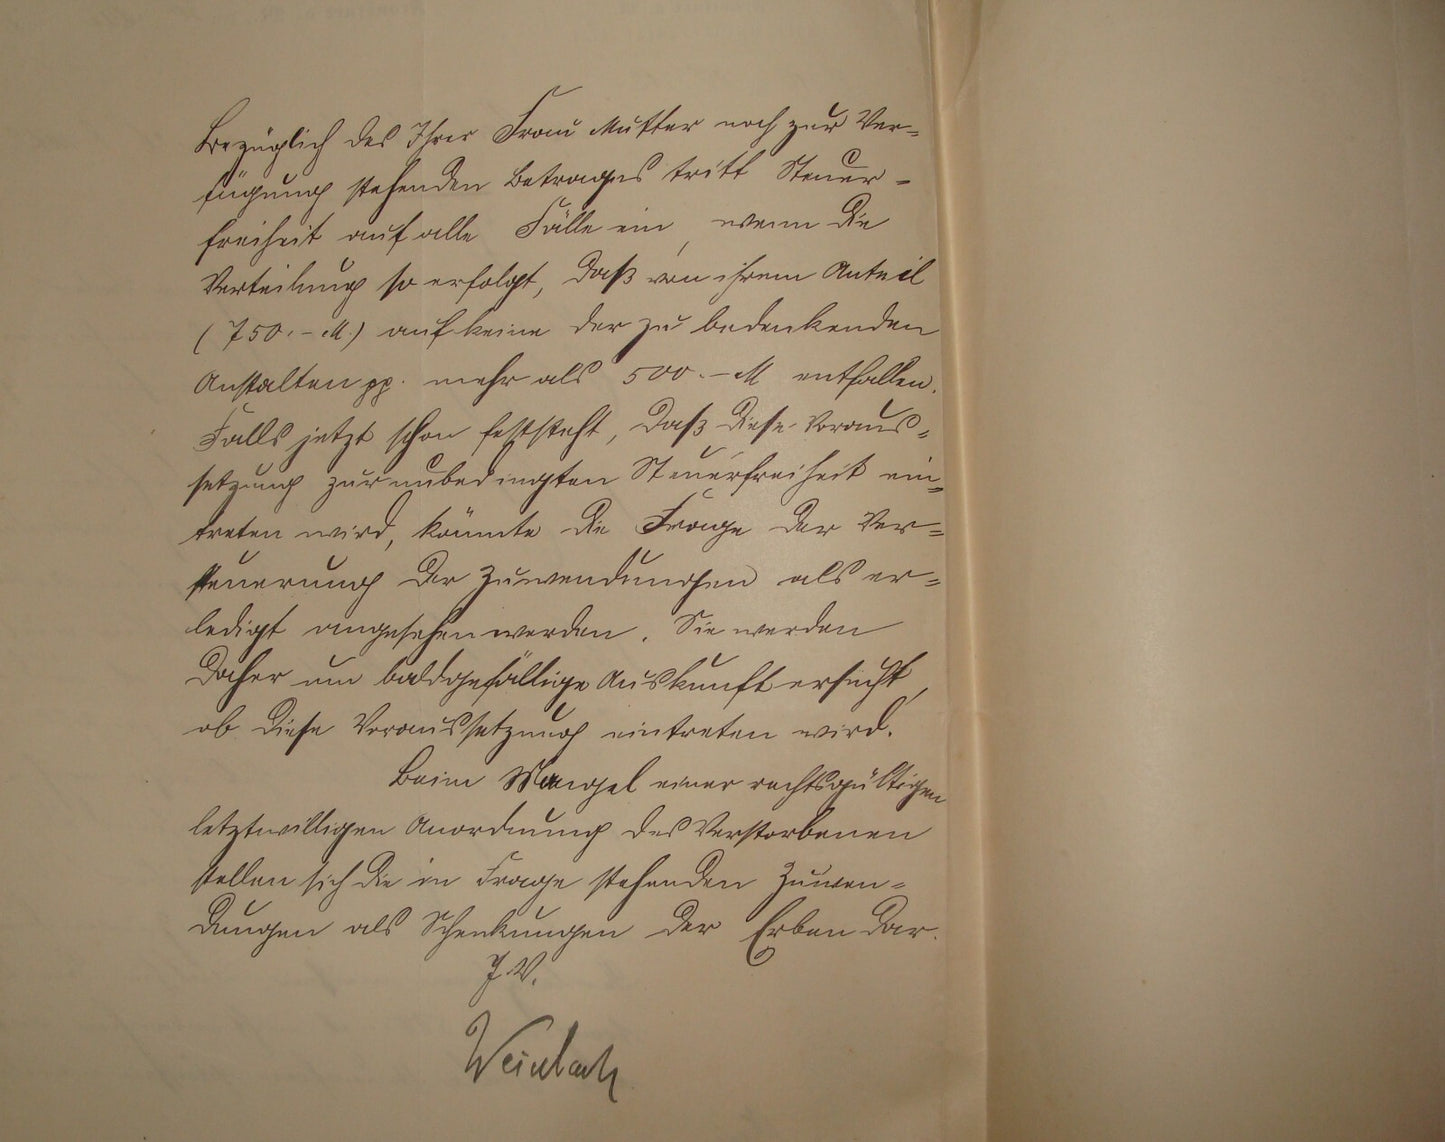 Bezüglich des Ihrer Frau Mutter noch zur Ver-
fügung stehenden Betrages tritt Steuer-
freiheit auf alle Fälle ein, wenn die
Verteilung so erfolgt, daß von ihrem Anteil
(750.- M.) auf keine der zu bedenkenden
Anstalten pp. mehr als 500.- M entfallen.
Falls jetzt schon feststeht, daß diese Voraus-
setzung zur unbedingten Steuerfreiheit ein-
treten wird, könnte die Frage der Ver-
steuerung der Zuwendungen als er-
ledigt angesehen werden. Sie werden
daher um baldgefällige Auskunft ersucht,
ob diese Voraussetzung eintreten wird.
Beim Mangel einer rechtsgültigen
letztwilligen Anordnung des Verstorbenen
stellen sich die in Frage stehenden Zuwen-
dungen als Schenkungen der Erben dar.
J.V.